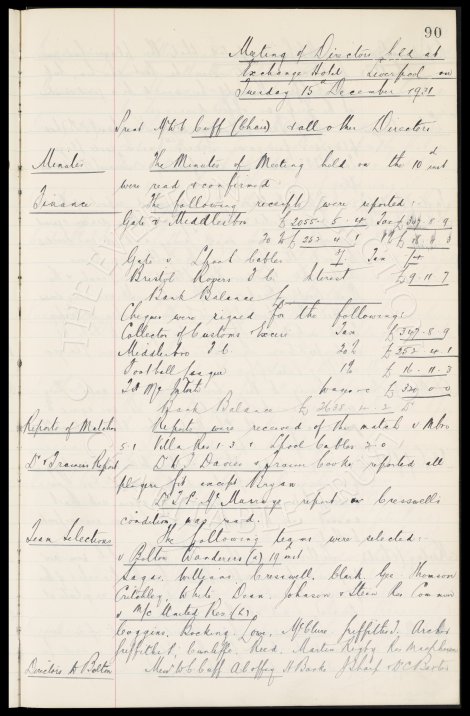 90
Meeting of Directors held at
Exchange Hotel Liverpool on
Tuesday 15th December 1931
Present Mr W C Cuff (Chair) & all other Directors
Minutes The Minutes of Meeting held on the 10th inst
were read & confirmed
Finance The following receipts were reported:
Gate v Middlesbro £2055. 5. 4 Tax £347. 8. 9
20% £252. 4. 1 1%
Gate v L'pool Cables Tax
Bristol Rovers F.C. Interest £9. 11. 7
Bank Balance £
Cheques were signed for the following:
Collector of Customs & Excise Tax £347. 8. 9
Middlesbro F.C. 20% £252. 4. 1
Football League 1% £16. 11. 3
Wages £320. 0. 0
Bank Balance £
Reports of Matches Reports were received of the match v M'bro
5.1 Villa Res 1.3 & L'pool Cables 2.0
Dr & Trainers Report Dr Davies & Trainer Cooke reported all
players fit except
Dr report on Cresswells
condition was read.
Team Selections The following teams were selected:
v Bolton Wanderers (a) 19th inst
Sagar, Williams, Cresswell, Clark, Gee, Thomson
Critchley, White, Dean, Johnson & Stein Res
v M/c United Res (h)
Coggins, Bocking, Lowe, McClure, Griffiths J, Archer
Griffiths T, Cunliffe, Reed, Martin, Rigby Res Macpherson
Directors to Bolton Messrs W C Cuff A Coffey H Banks J Sharp